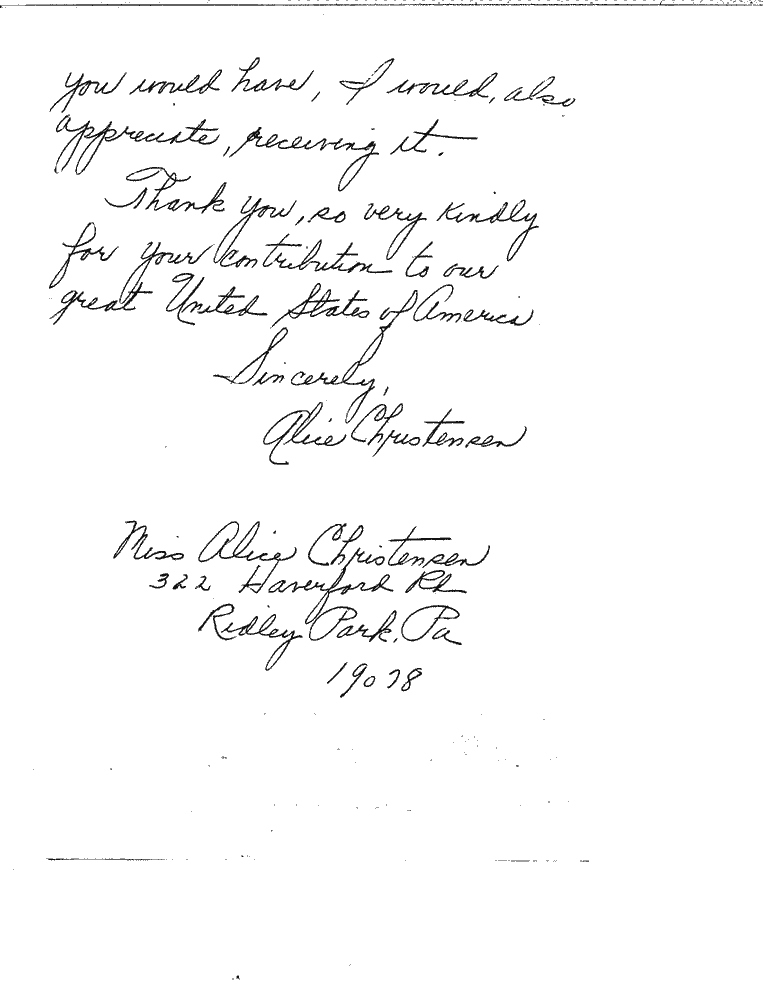 you would have, I would, also
appreciate, receiving it.
Thank you, so very kindly
for your contribution to our
great United States of America
Sincerely,
Alice Christensen
Miss Alice Christensen
322 Haverford Rd
Ridley Park, Pa
19078